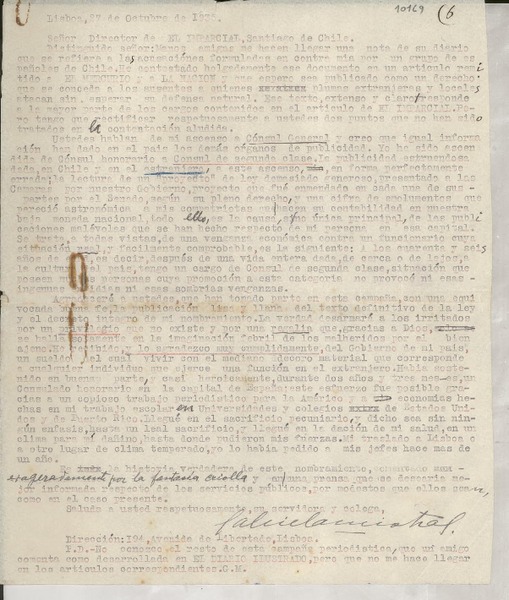 10169 (6
Lisboa, 27 de Octubre de 1935.
Señor Director de EL IMPARCIAL, Santiago de Chile.
Distinguido señor: Manos amigas me hacen llegar una nota de su diario
que se refiere a las acusaciones formuladas en contra mía por un grupo de es
pañoles de Chile. He contestado holgadamente ese documento en un artículo remi
tido a EL MERCURIO y a LA NACION y que espero sea publicado como un derecho
que se concede a los ausentes a quienes plumas extranjeras y locales
atacan sin esperar su defensa natural. Ese texto, extenso y claro, responde
a la mayor parte de los cargos contenidos en el artículo de EL IMPARCIAL. Pe
ro tengo que rectificar respetuosamente a ustedes dos puntos que no han sido
tratados en la contestación aludida.
Ustedes hablan de mi ascenso a Cónsul General y creo que igual informa
ción han dado en el país los demás órganos de publicidad. Yo he sido ascen
dida de Cónsul honorario a Consul de segunda clase. La publicidad estruendosa
dada, en Chile y en el extranjero, a este ascenso, en forma perfectamente
errada; la lectura de un proyecto de ley demasiado generoso, presentado a las
Cámaras por nuestro Gobierno, proyecto que fué enmendado en cada una de sus
partes por el Senado, según su pleno derecho, y una cifra de emolumentos que
pareció astronómica a mis compatriotas por su contabilidad en nuestra
baja moneda nacional, todo ello, es la causa, no única, principal, de las publi
caciones malévolas que se han hecho respecto de mi persona en esa capital.
Se trata, a todas vistas, de una venganza económica contra un funcionario cuya
situación real, y fácilmente comprobable, es la siguiente: a los cuarenta y seis
años de edad, es decir, después de una vida entera dada, de cerca o de lejos, a
la cultura del país, tengo un cargo de Consul de segunda clase, situación que
poseen muchas personas cuya promoción a esta categoría no provocó ni esas
ingentes envidias ni esas sombrías venganzas.
Agradeceré a ustedes, que han tomado parte en esta campaña, son una equi
vocada buena fe, la publicación lisa y llana del texto definitivo de la ley
y el decreto interno de mi nombramiento. La verdad desarmará a los irritados
por un privilegio que no existe y por una regalía que, gracias a Dios,
se halla solamente en la imaginación febril de los malheridos por el bien
ajeno. He recibido, y lo agradezco muy cumplidamente, del Gobierno de mi país,
un sueldo con el cual vivir con el mediano decoro material que corresponde
a cualquier individuo que ejerce una función en el extranjero. Había soste
nido en buena parte, casi heroicamente, durante dos años y tres meses, un
Consulado honorario en la capital de España. Este esfuerzo fué posible gra
cias a un copioso trabajo periodístico para la América y a economías he
chas en mi trabajo escolar en Universidades y colegios de Estados Uni
dos y de Puerto Rico. Llegué en el sacrificio pecuniario, y dicho sea sin nin
gún énfasis, hasta un real sacrificio, y llegué en la decadencia de mi salud, en un
clima para mí dañino, hasta donde pudieron mis fuerzas. Mi traslado a Lisboa o
a otro lugar de clima temperado, yo lo había pedido a mis jefes hace mas de
un año.
Es la historia verdadera de este nombramiento, comentado
exageradamente por la fantasía criolla y en una prensa que se desearía me
jor informada respecto de los servicios públicos, por modestos que ellos sean,
como en el caso presente.
Saluda a usted respetuosamente su servidora y colega,
Gabriela Mistral.
Dirección: 194, Avenida de Libertade, Lisboa.
P.D.-No conozco el resto de esta campaña periodística, que un amigo
comenta como desarrollada en EL DIARIO ILUSTRADO, pero que no me hace llegar
en los artículos correspondientes. G.M.